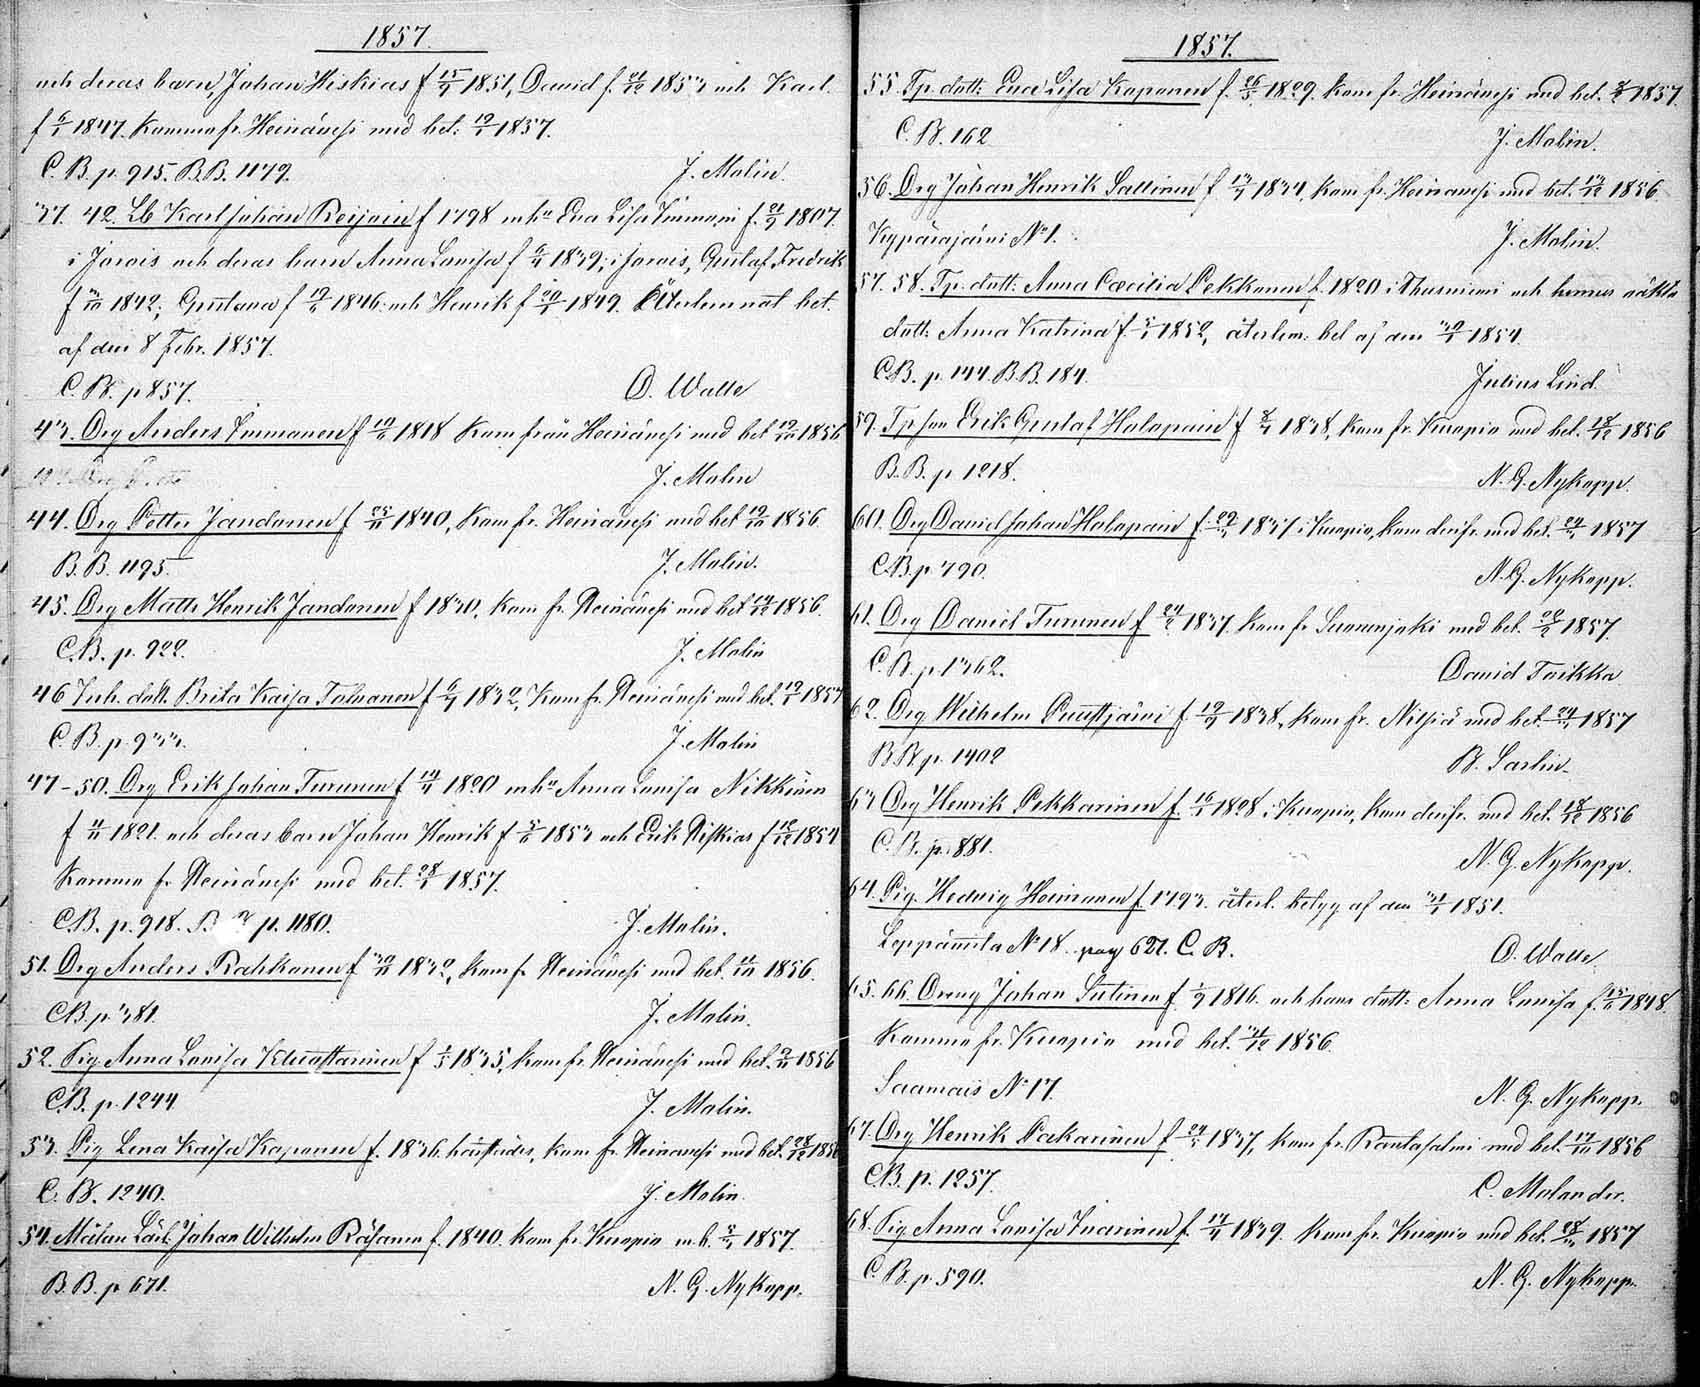 1857.
och deras barn, Johan Hiskias f 15/9 1851, David f. 21/12 1853 och Karl.
f 6/1 1847. Komma fr. Heinävesi med bet: 19/1 1857.
C. B. p. 915. B.B. 1179. J. Malin.
37. 42. Lb Karl Johan Reijoin f 1798 m hu Eva Lisa Immoni f. 21/9 1807.
i Jorois och deras barn Anna Lovisa f 1839, i Jorois, Gustaf Fredrik
f 1842, Gustava f 1846 och Henrik f 1849. Återlemnat bet.
af den 8 Febr. 1857.
C. B. p 857. O. Walle
43. Drg Anders Immonen f 1818 Kom från Heinävesi med bet 19/10 1856
J. Malin
44. Drg Petter Jandonen f 1840, Kom fr. Heinävesi med bet 19/10 1856.
B. B. 1195. J. Malin.
45. Drg Matts Henrik Jandonen f 1830. Kom fr. Heinävesi med bet 1856.
C. B. p. 922. J. Malin
46 Inh. dott. Brita Kaisa Tolvanen f 1832, Kom fr. Heinävesi med bet. 19/1 1857
C. B. p. 933. J. Malin
47-50. Drg Erik Johan Turunen f 1820 m hu Anna Lovisa Nikkinen
f 1821. och deras barn Johan Henrik f 1853 och Erik Hiskias f 1854
Komma fr Heinävesi med bet. 28/1 1857.
C.B. p. 918. B p. 1180. J. Malin.
51. Drg Anders Rahkonen f 1832, kom fr Heinävesi med bet. 1856.
C.B. p 381. J. Malin.
52. Pig. Anna Lovisa f 1835, kom fr. Heinävesi med bet. 1856
C.B. p. 1244 J. Malin.
53. Pig Lena Kaisa Koponen f. 1836. kom fr Heinävesi med bet. 28/12 1856
C. B. 1240. J. Malin
54. Målare Lärl. Johan Wilhelm Räsänen f. 1840. Kom fr. Kuopio m. b. 1857.
B. B. p 671. N. G. Nykopp.
1857.
55. Tp. dott. Eva Lisa Koponen f. 26/5 1829. Kom fr. Heinävesi med bet. 1857.
C. B. 162 J. Malin.
56. Drg Johan Henrik Sallinen f 1834, Kom fr. Heinävesi med bet. 1856
Kypäräjärvi No 1. J. Malin.
57. 58. Tp. dott: Anna Cæcilia Pekkonen f. 1820 i Thusniemi och hennes oäkta
dott. Anna Katrina f. 1852, återlem. bet af den 1854.
C.B. p. 144. B.B. 184. Julius Lind.
59. Tp son Erik Gustaf Holopain f 1838, Kom fr. Kuopio med bet. 18/12 1856
B. B. p. 1218. N. G. Nykopp.
60. Drg David Johan Holopain f. 1837 i Kuopio, kom derifr. med bet. 1857
C.B. p 790. N. G. Nykopp.
61. Drg Daniel Turunen f 24/2 1837. Kom fr Suonenjoki med bet. 28/2 1857.
C. B. p. 1362. David Toikka
62. Drg Wilhelm Puustjärvi f. 19/9 1838, kom fr. Nilsiä med bet. 1857
B.B. p. 1402 B. Sarlin.
63 Drg Henrik Pekkarinen f. 16/1 1828 i Kuopio, kom derifr. med bet. 18/12 1856
C. B. p. 881. N. G. Nykopp.
64. Pig. Hedvig Heimonen f. 1793. återl. betyg af den 1851.
Leppämäla No 18. pag 627. C. B. O. Walle.
65. 66. Dreng Johan Sutinen f 1/9 1816. och hans dott: Anna Lovisa f. 1848.
Komma fr. Kuopio med bet. 1856.
Saamais No 17. N. G. Nykopp.
67. Drg Henrik Pakarinen f 1837, kom fr. Rantasalmi med bet. 17/10 1856
C.B. p. 1257. C. Molander.
68. Pig. Anna Lovisa f. 1839. Kom fr. Kuopio med bet. 1857
C. B. p. 590. N. G. Nykopp.